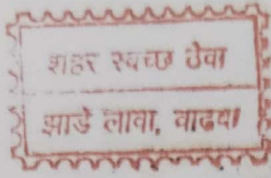 शहर स्वच्छ ठेवा
झाडे लावा, वाढवा